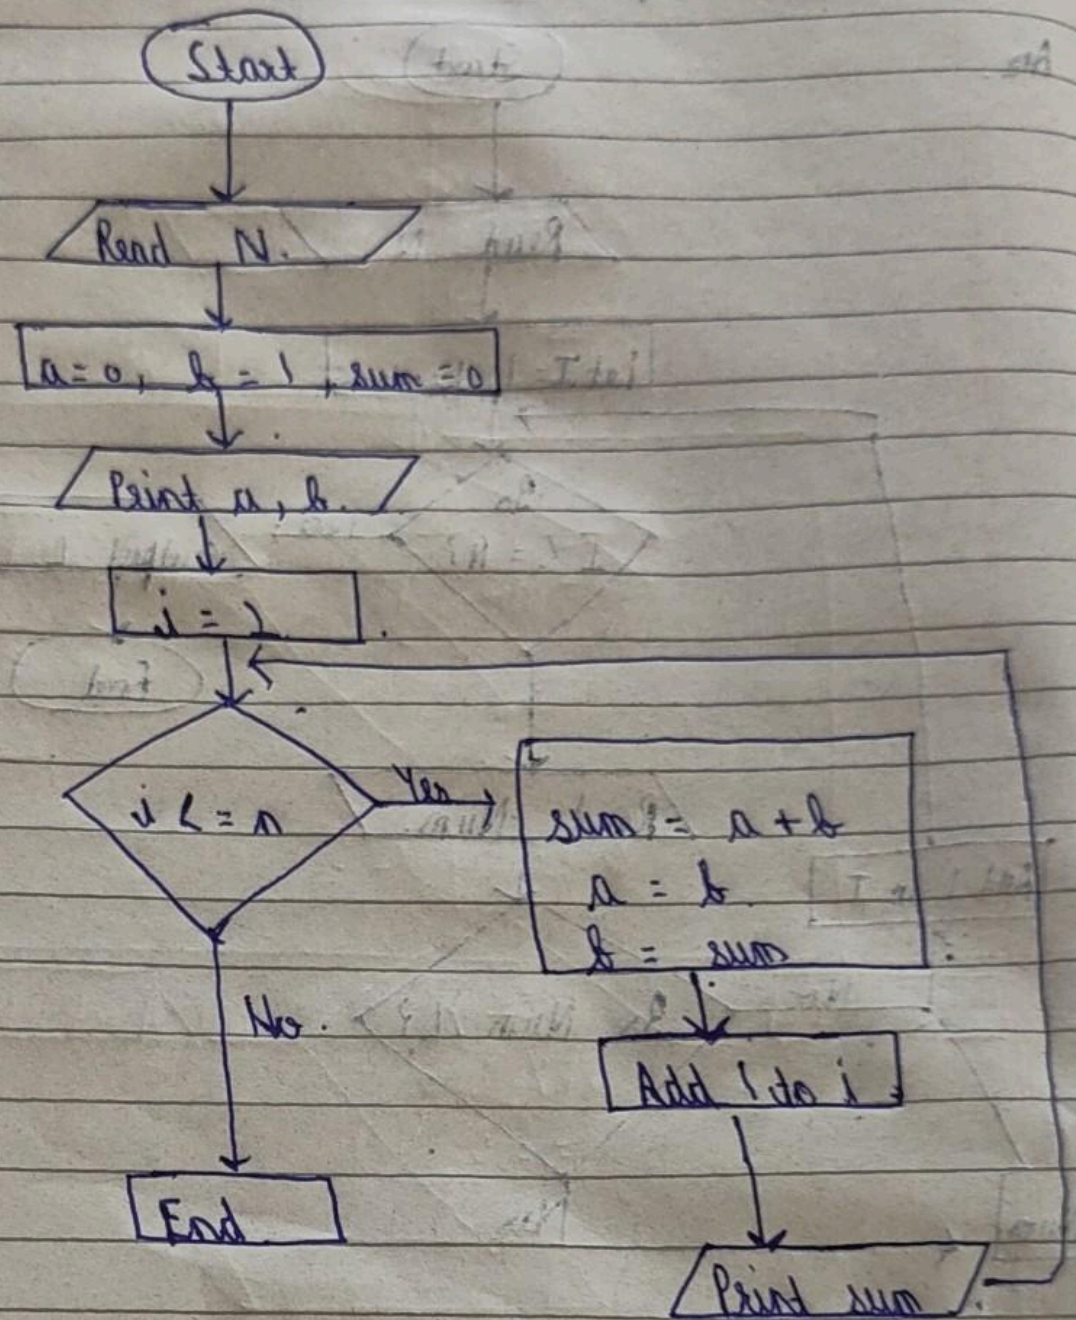 Start
Read N.
a = 0, b = 1, sum = 0
Print a, b.
i = 2
i <= n
Yes
sum = a + b
a = b
b = sum
No.
Add 1 to i
End
Print sum